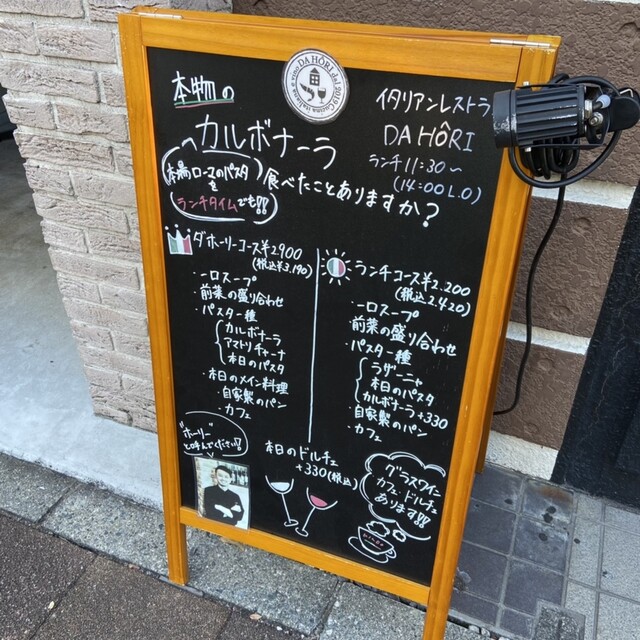 DA HÔRI dal 2019 Cucina italiana e
本物の
カルボナーラ
イタリアンレストラ
DA HÔRI
ランチ 11:30〜
(14:00 L.O)
本場ローマのパスタ
を
ランチタイムでも!!
食べたことありますか?
ダホーリーコース¥2,900
(税込¥3,190)
・一口スープ
前菜の盛り合わせ
・パスタ一種
カルボナーラ
アマトリチャーナ
本日のパスタ
・本日のメイン料理
・自家製のパン
・カフェ
ランチコース¥2,200
(税込2,420)
・一口スープ
前菜の盛り合わせ
・パスタ一種
ラザーニャ
本日のパスタ
カルボナーラ+330
・自家製のパン
・カフェ
"ホーリー"
と呼んでください!?
本日のドルチェ
+330(税込)
グラスワイン
カフェ・ドルチェ
あります!!